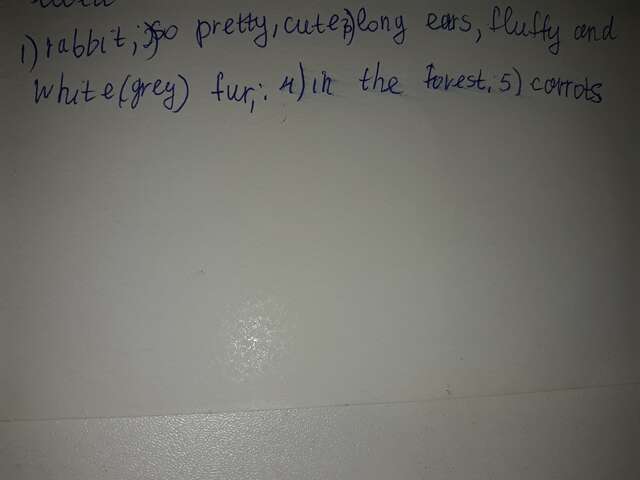 1) rabbit; 3) so pretty, cute; 2) long ears, fluffy and
white(grey) fur; 4) in the forest; 5) carrots